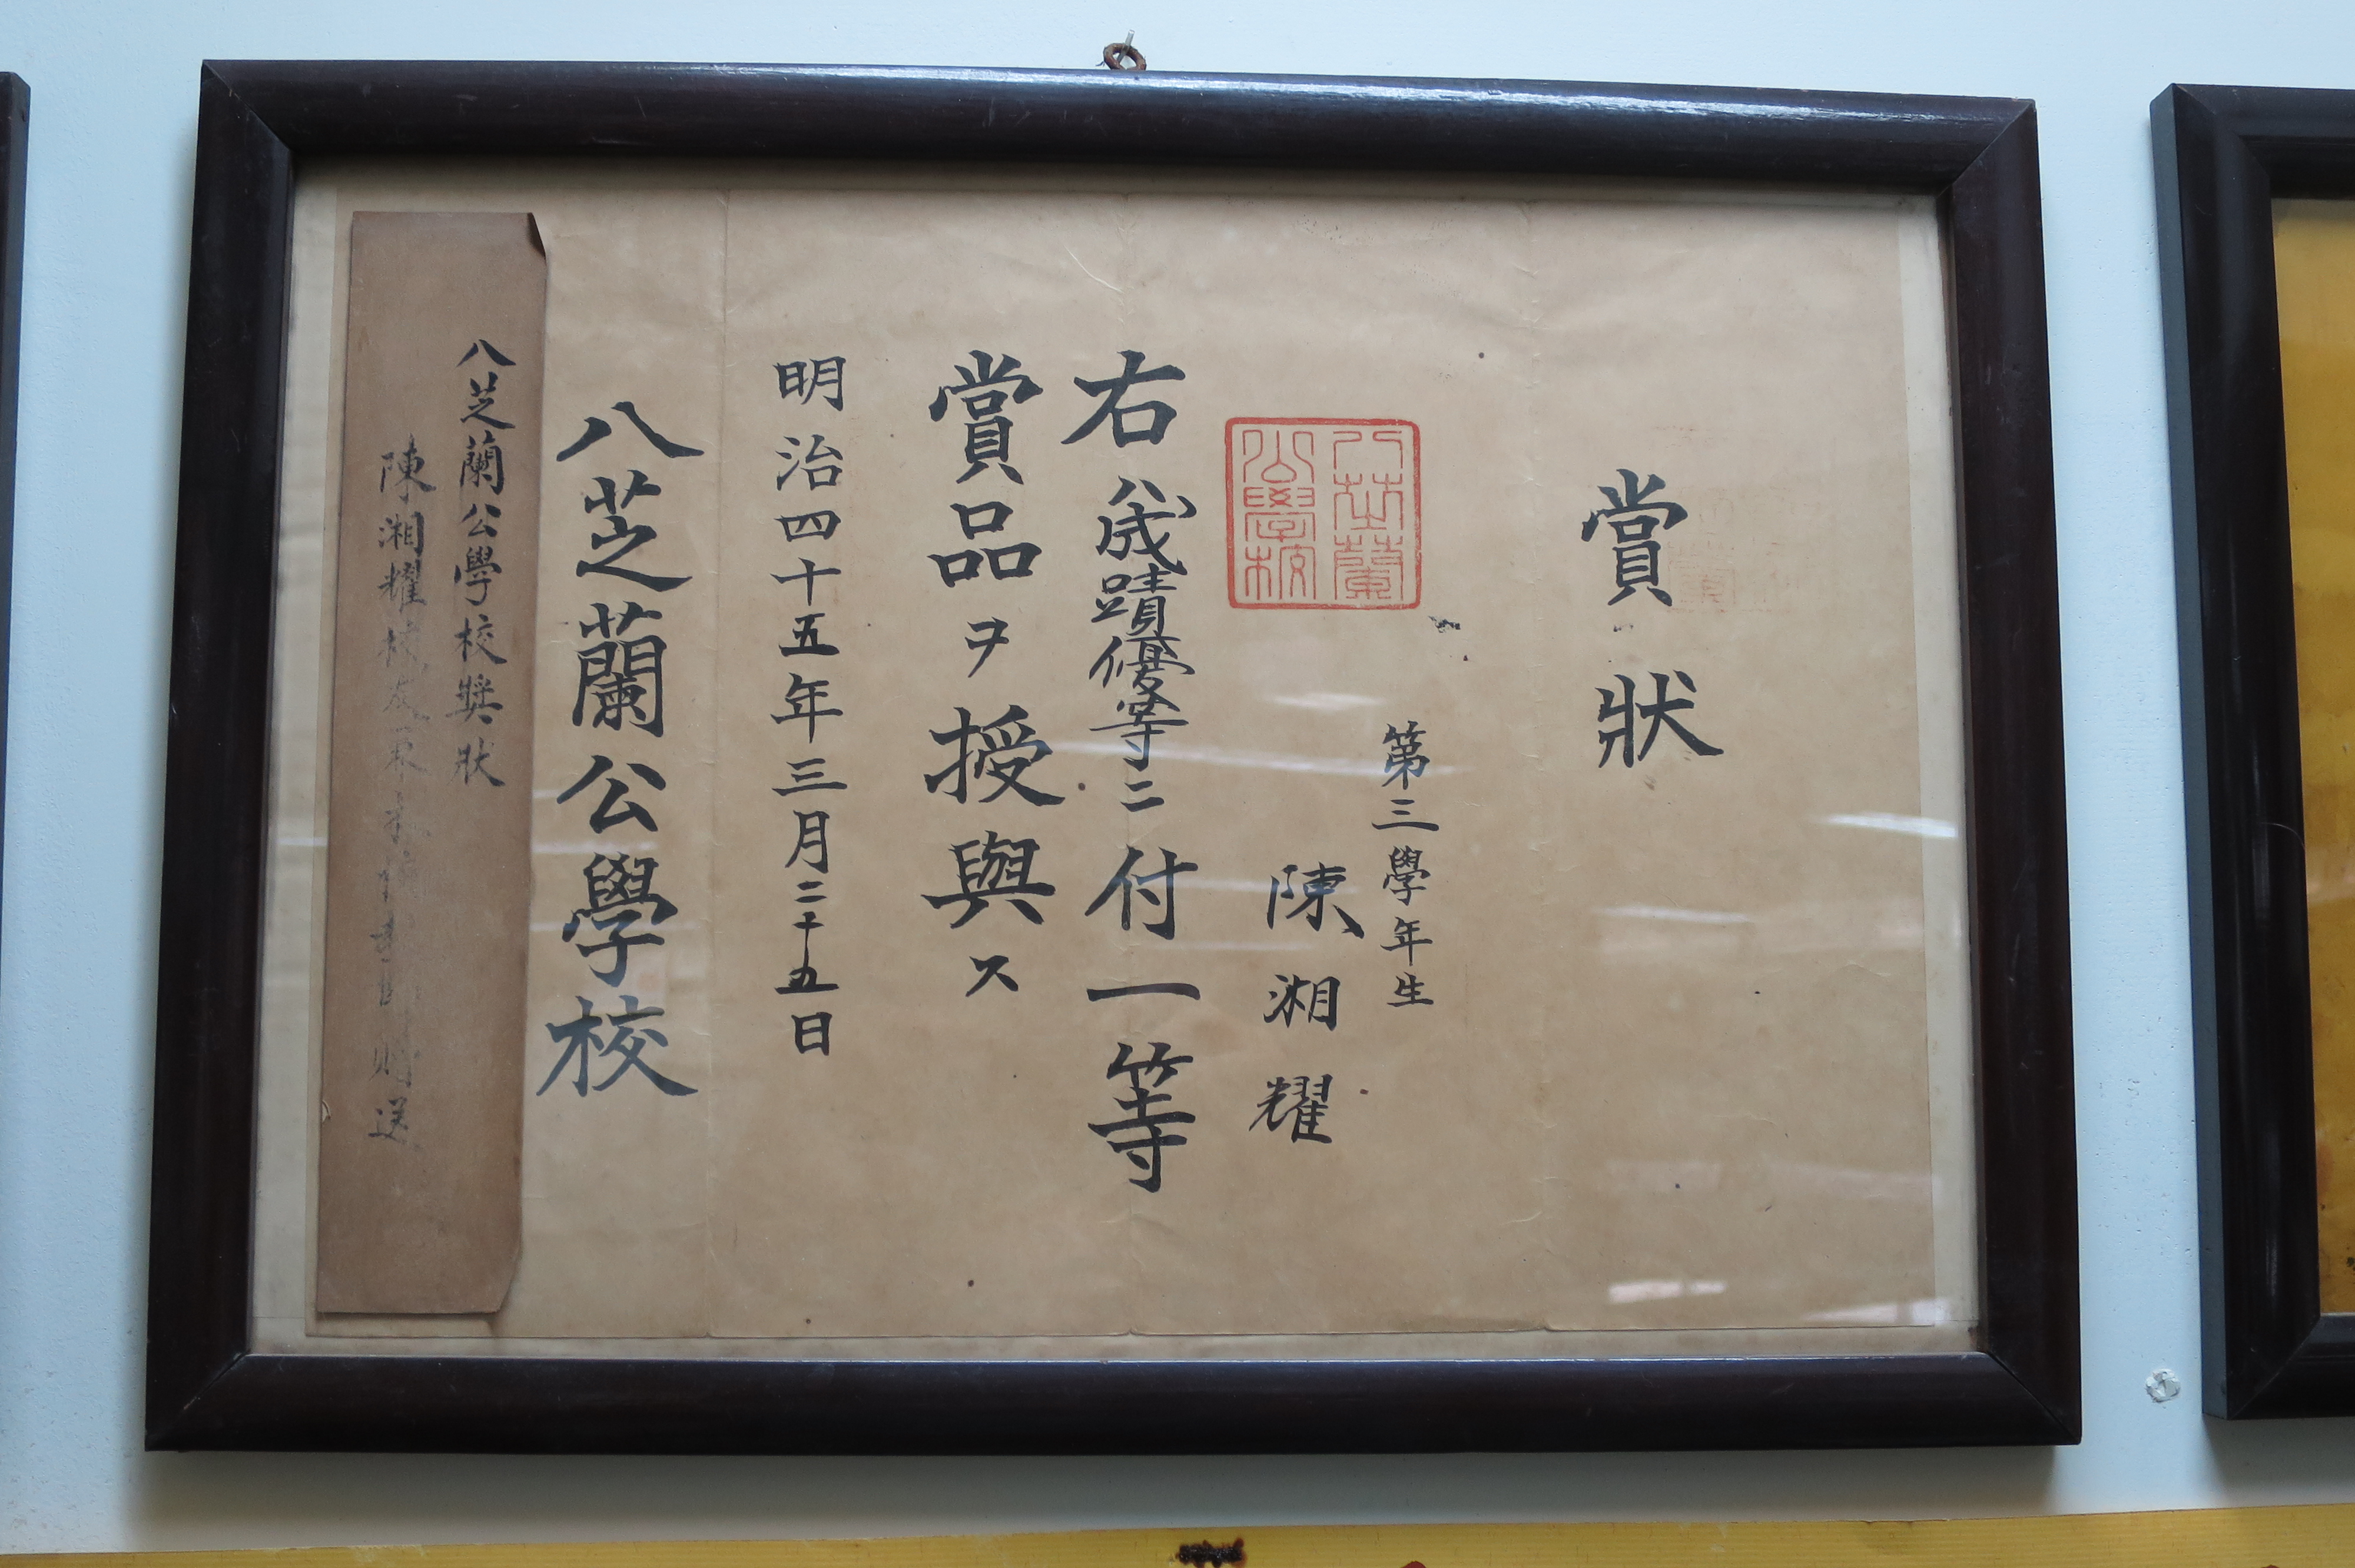 賞狀
第三學年生
陳湘耀
八芝蘭
公學校
右ハ成蹟優等ニ付一等
賞品ヲ授與ス
明治四十五年三月二十五日
八芝蘭公學校
八芝蘭公學校獎狀
陳湘耀校友
贈送